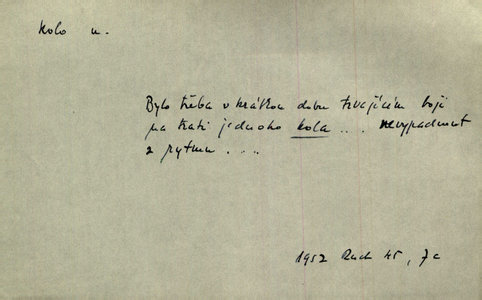 kolo n.
Bylo třeba v krátkou dobu trvajícím boji
na trati jednoho kola ... nevypadnout
z rytmu ....
1952 Ruch 45, 7c